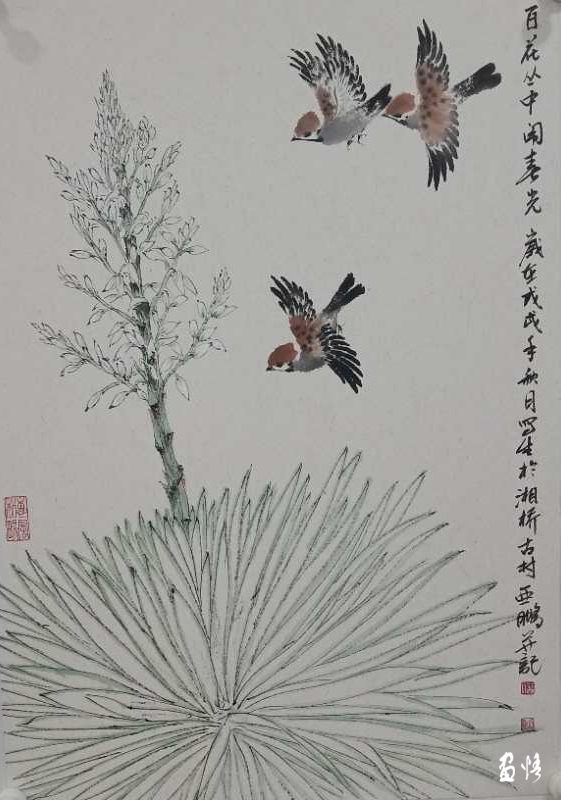 百花丛中闹春光 岁在戊戌年秋月写生於湘桥古村亚鹏并記